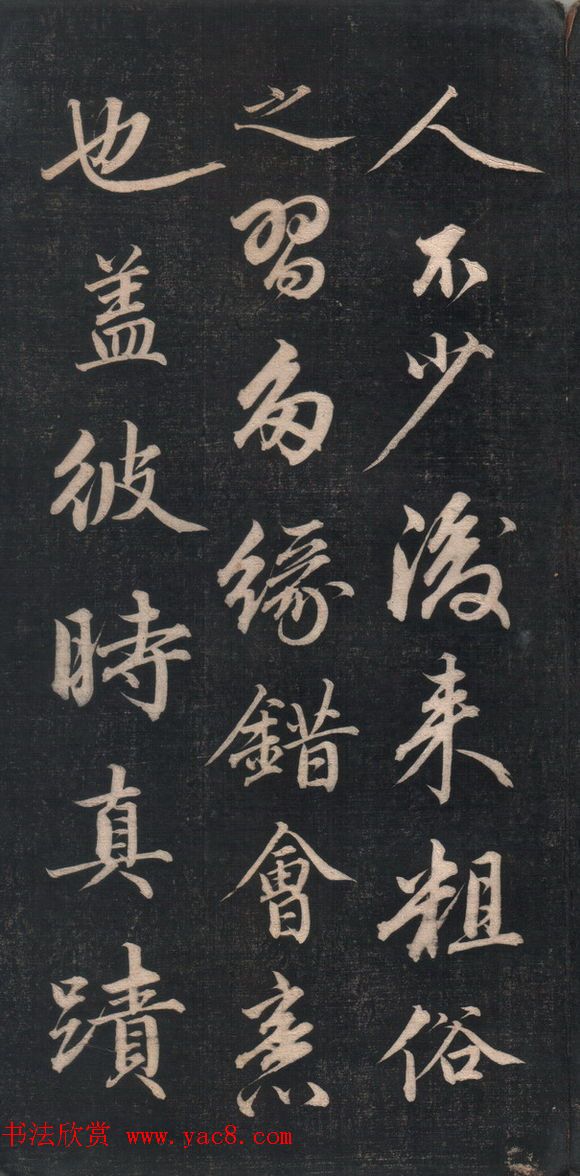 人不少後来粗俗
之習多緣錯會意
也盖彼時真蹟
书法欣赏 www.yac8.com